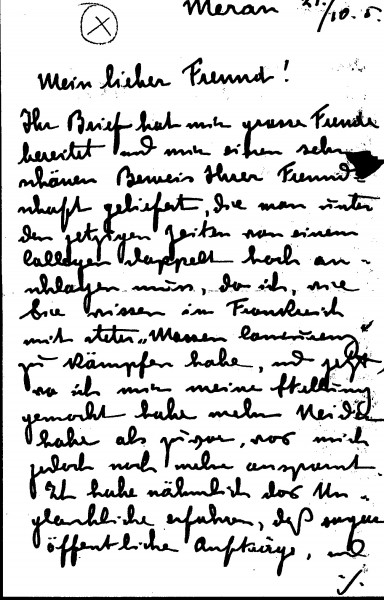 Meran 21./10. 5.
Mein lieber Freund!
Ihr Brief hat mir grosse Freude
bereitet und mir einen sehr
schönen Beweis Ihrer Freund-
schaft geliefert, die man unter
den jetzigen Zeiten von einem
Collegen doppelt hoch an-
schlagen muss, da ich, wie
Sie wissen in Frankreich
mit steter
zu kämpfen habe, und jetzt,
wo ich mir meine Stellung
gemacht habe mehr Neider
habe als zuvor, was mich
jedoch noch mehr anspornt.
Ich habe nähmlich das Un-
glaubliche erfahren, daß sogar
öffentliche Aufträge, und
./.